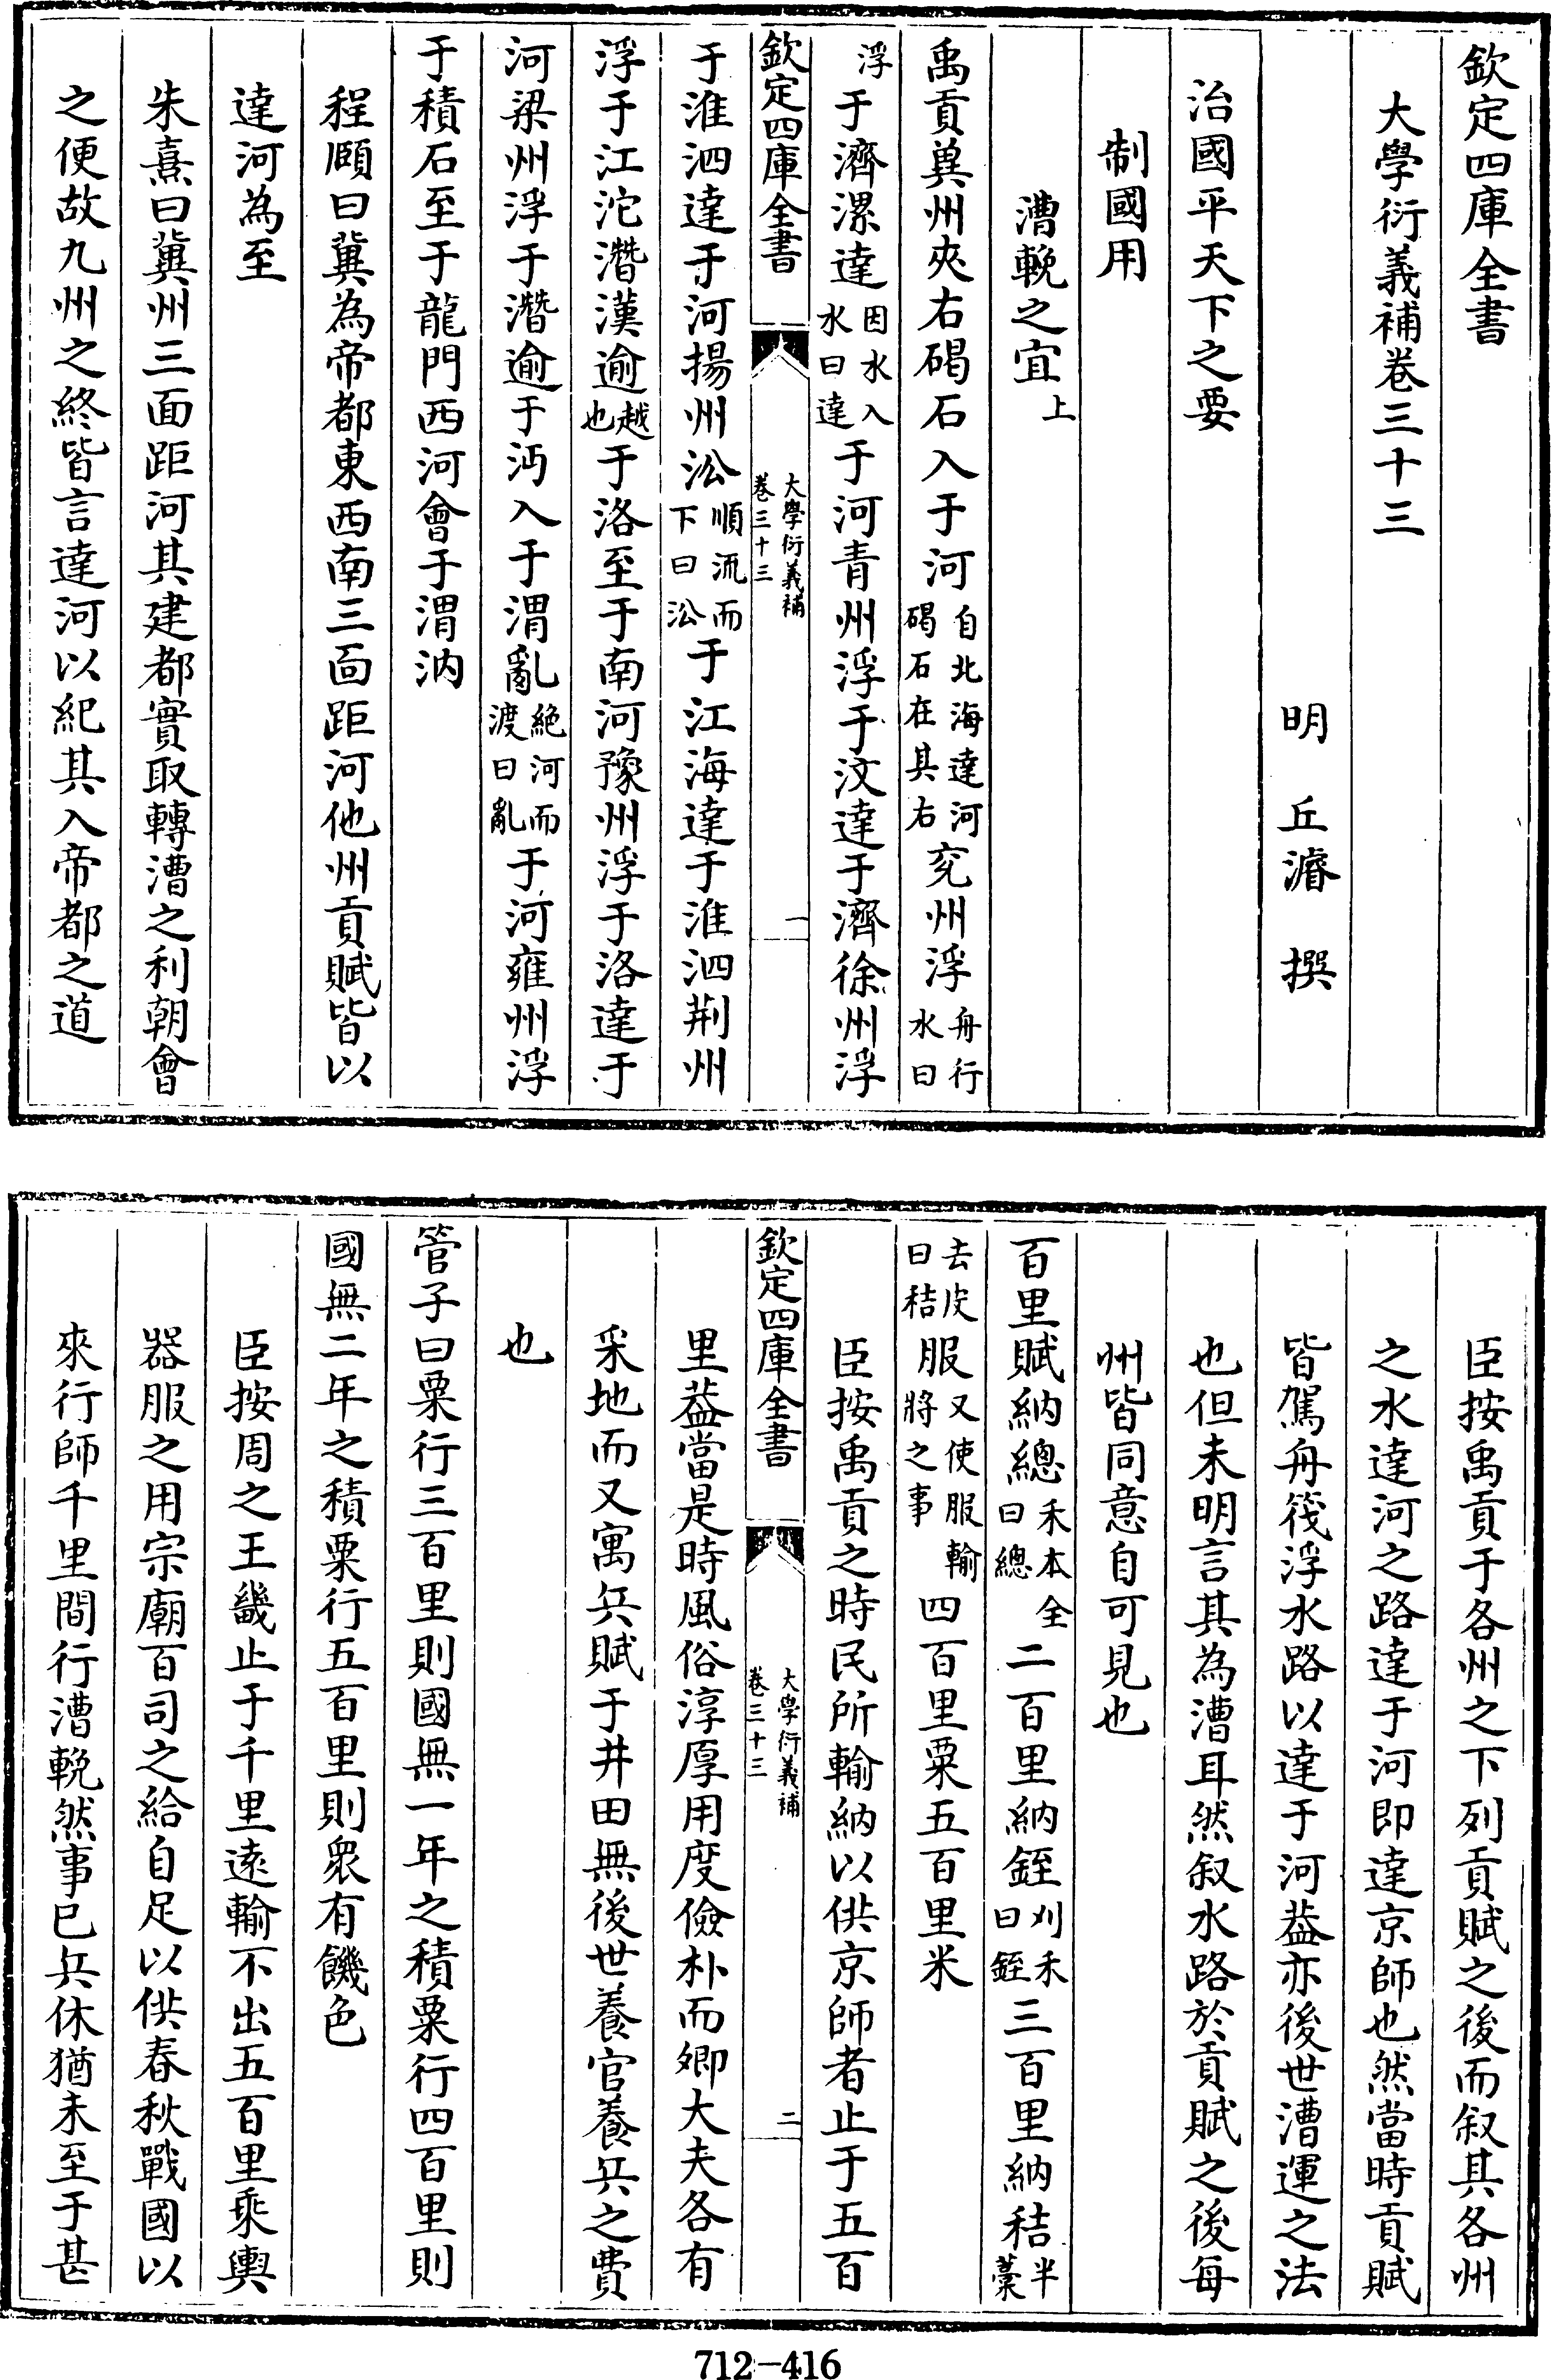 欽定四庫全書
大學衍義補卷三十三
明 丘濬 撰
治國平天下之要
制國用
漕輓之宜上
禹貢冀州夾右碣石入于河自北海達河碣石在其右兗州浮舟行水曰
浮于濟漯達因水入水曰達于河青州浮于汶達于濟徐州浮
欽定四庫全書 大學衍義補卷三十三 一
于淮泗達于河揚州㳂順流而下曰㳂于江海達于淮泗荆州
浮于江沱潛漢逾越也于洛至于南河豫州浮于洛達于
河梁州浮于潛逾于沔入于渭亂絶河而渡曰亂于河雍州浮
于積石至于龍門西河會于渭汭
程頤曰冀為帝都東西南三面距河他州貢賦皆以
達河為至
朱熹曰冀州三面距河其建都實取轉漕之利朝會
之便故九州之終皆言達河以紀其入帝都之道
臣按禹貢于各州之下列貢賦之後而叙其各州
之水達河之路達于河即達京師也然當時貢賦
皆駕舟筏浮水路以達于河葢亦後世漕運之法
也但未明言其為漕耳然叙水路於貢賦之後每
州皆同意自可見也
百里賦納總禾本全曰總二百里納銍刈禾曰銍三百里納秸半藁
去皮曰秸服又使服輸將之事四百里粟五百里米
臣按禹貢之時民所輸納以供京師者止于五百
欽定四庫全書 大學衍義補卷三十三 二
里葢當是時風俗淳厚用度儉朴而卿大夫各有
采地而又寓兵賦于井田無後世養官養兵之費
也
管子曰粟行三百里則國無一年之積粟行四百里則
國無二年之積粟行五百里則衆有饑色
臣按周之王畿止于千里遠輸不出五百里乘輿
器服之用宗廟百司之給自足以供春秋戰國以
來行師千里間行漕輓然事已兵休猶未至于甚
712-416